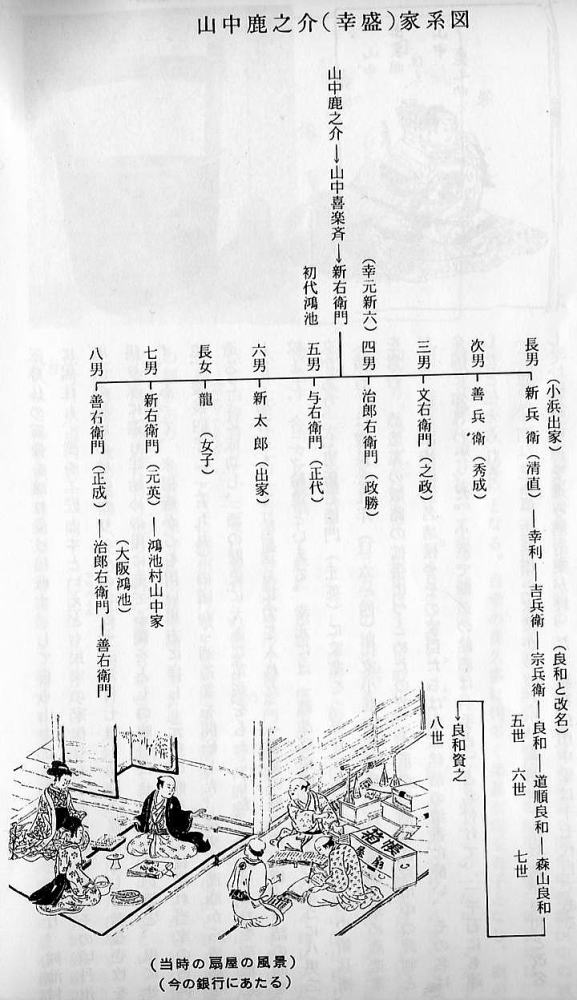 山中鹿之介(幸盛)家系図
山中鹿之介→山中喜楽斉→新右衛門
(幸元新六)
初代鴻池
(小浜出家)
長男 新兵衛(清直)―幸利―吉兵衛―宗兵衛―良和―道順良和―森山良和
(良和と改名)
五世 六世 七世
良和資之
八世
次男 善兵衛(秀成)
三男 文右衛門(之政)
四男 治郎右衛門(政勝)
五男 与右衛門(正代)
六男 新太郎(出家)
長女 龍(女子)
七男 新右衛門(元英)―鴻池村山中家
八男 善右衛門(正成)―治郎右衛門―善右衛門
(大阪鴻池)
(当時の扇屋の風景)
(今の銀行にあたる)